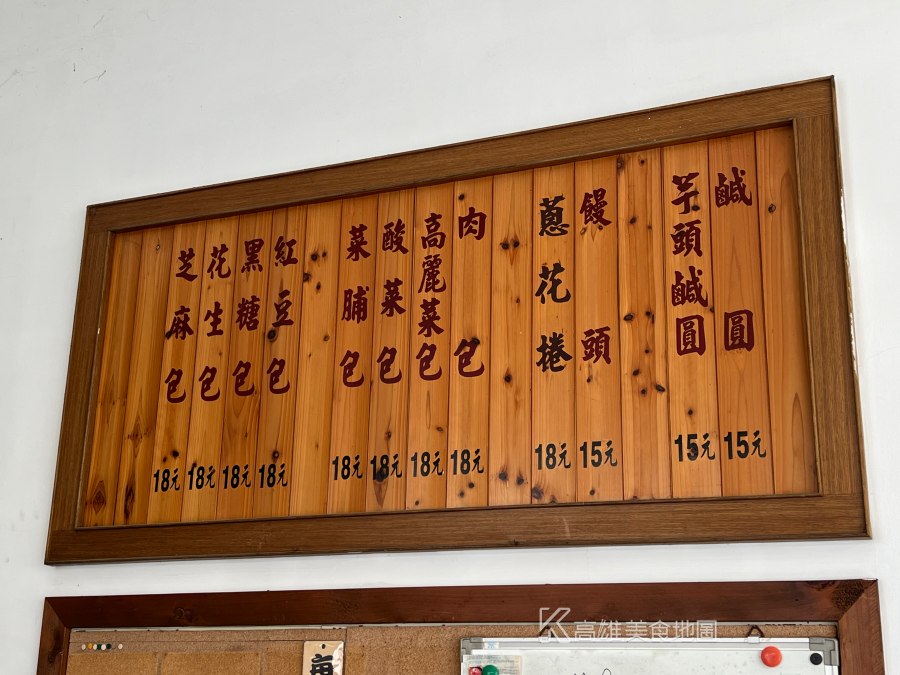 鹹圓 15元
芋頭鹹圓 15元
饅頭 15元
蔥花捲 18元
肉包 18元
高麗菜包 18元
酸菜包 18元
菜脯包 18元
紅豆包 18元
黑糖包 18元
花生包 18元
芝麻包 18元
高雄美食地圖